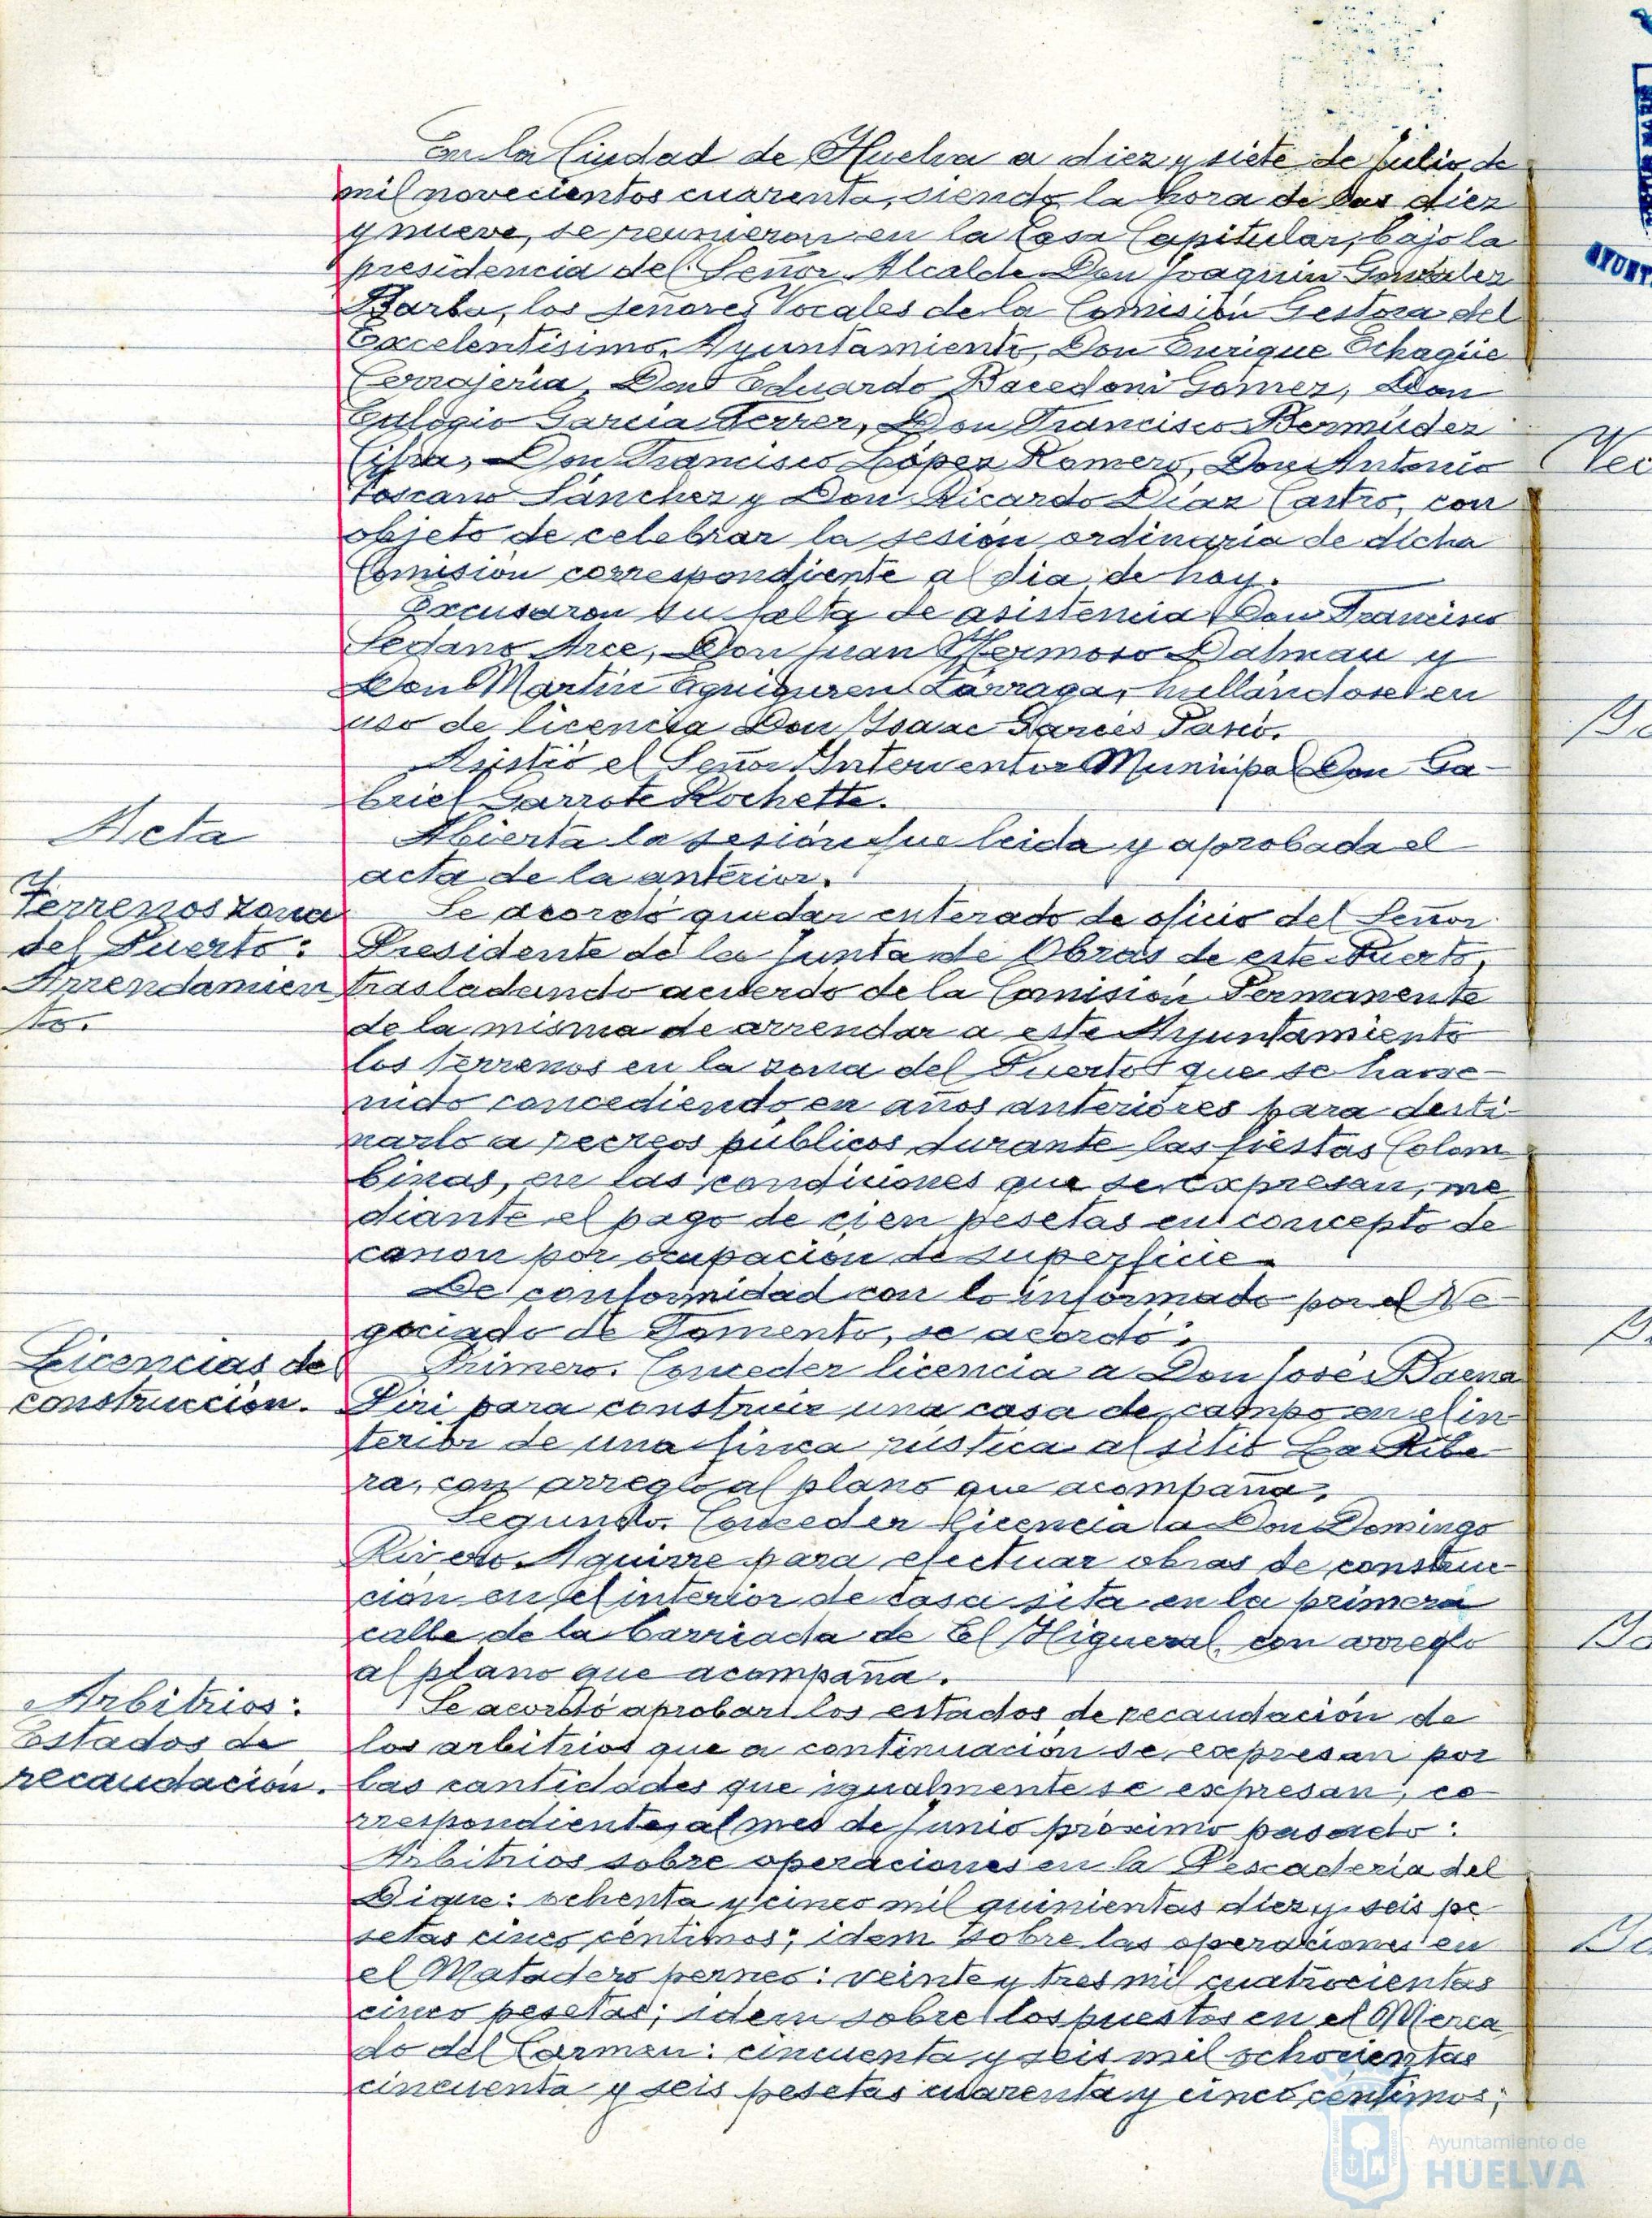 En la Ciudad de Huelva a diez y siete de Julio de
mil novecientos cuarenta, siendo la hora de las diez
y nueve, se reunieron en la Casa Capitular, bajo la
presidencia del Señor Alcalde Don Joaquin González
Barba, los señores Vocales de la Comisión Gestora del
Excelentísimo Ayuntamiento, Don Enrique Echagüe
Cerrajería, Don Eduardo Bacedoni Gómez, Don
Eulogio García Ferrer, Don Francisco Bermúdez
Cifra, Don Francisco López Romero, Don Antonio
Toscano Sánchez y Don Ricardo Díaz Castro, con
objeto de celebrar la sesión ordinaria de dicha
Comisión correspondiente al dia de hoy.
Excusaron su falta de asistencia Don Francisco
Sedano Arce, Don Juan Hermoso Dalmau y
Don Martín Eguiguren Lárraga, hallándose en
uso de licencia Don Isaac Garcés
Asistió el Señor Interventor Municipal Don Ga-
briel Garrote Rochette.
Acta
Abierta la sesión fue leida y aprobada el
acta de la anterior.
Terrenos zona
del Puerto:
Arrendamien
to.
Se acordó quedar enterado de oficio del Señor
Presidente de la Junta de Obras de este Puerto,
trasladando acuerdo de la Comisión Permanente
de la misma de arrendar a este Ayuntamiento
los terrenos en la zona del Puerto que se ha ve-
nido concediendo en años anteriores para desti-
narlo a recreos públicos durante las fiestas Colom
binas, en las condiciones que se expresan, me
diante el pago de cien pesetas en concepto de
canon por ocupación de superficie.
De conformidad con lo informado por el Ne-
gociado de Fomento, se acordó:
Licencias de
construcción.
Primero. Conceder licencia a Don José Baena
Piri para construir una casa de campo en el in-
terior de una finca rústica al sitio La Ribe-
ra, con arreglo al plano que acompaña.
Segundo. Conceder licencia a Don Domingo
Rivero Aguirre para efectuar obras de construc-
ción en el interior de casa sita en la primera
calle de la barriada de El Higueral, con arreglo
al plano que acompaña.
Arbitrios:
Estados de
recaudación.
Se acordó aprobar los estados de recaudación de
los arbitrios que a continuación se expresan por
las cantidades que igualmente se expresan, co-
rrespondientes al mes de Junio próximo pasado:
Arbitrios sobre operaciones en la Pescadería del
Dique: ochenta y cinco mil quinientas diez y seis pe-
setas cinco céntimos; idem sobre las operaciones en
el Matadero pernes: veinte y tres mil cuatrocientas
cinco pesetas; idem sobre los puestos en el Merca
do del Carmen: cincuenta y seis mil ochocientas
cincuenta y seis pesetas cuarenta y cinco céntimos;
Ayuntamiento de
HUELVA